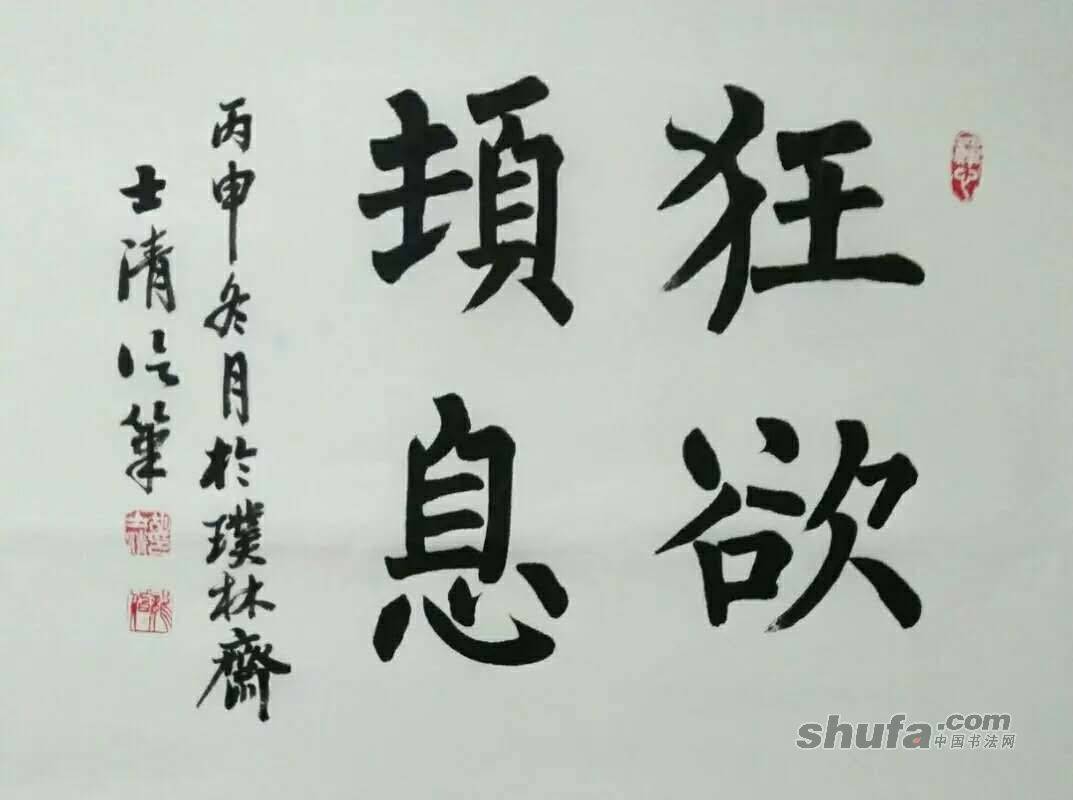 狂欲
頓息
丙申冬月於璞林齋
士清作筆
shufa.com
中国书法网